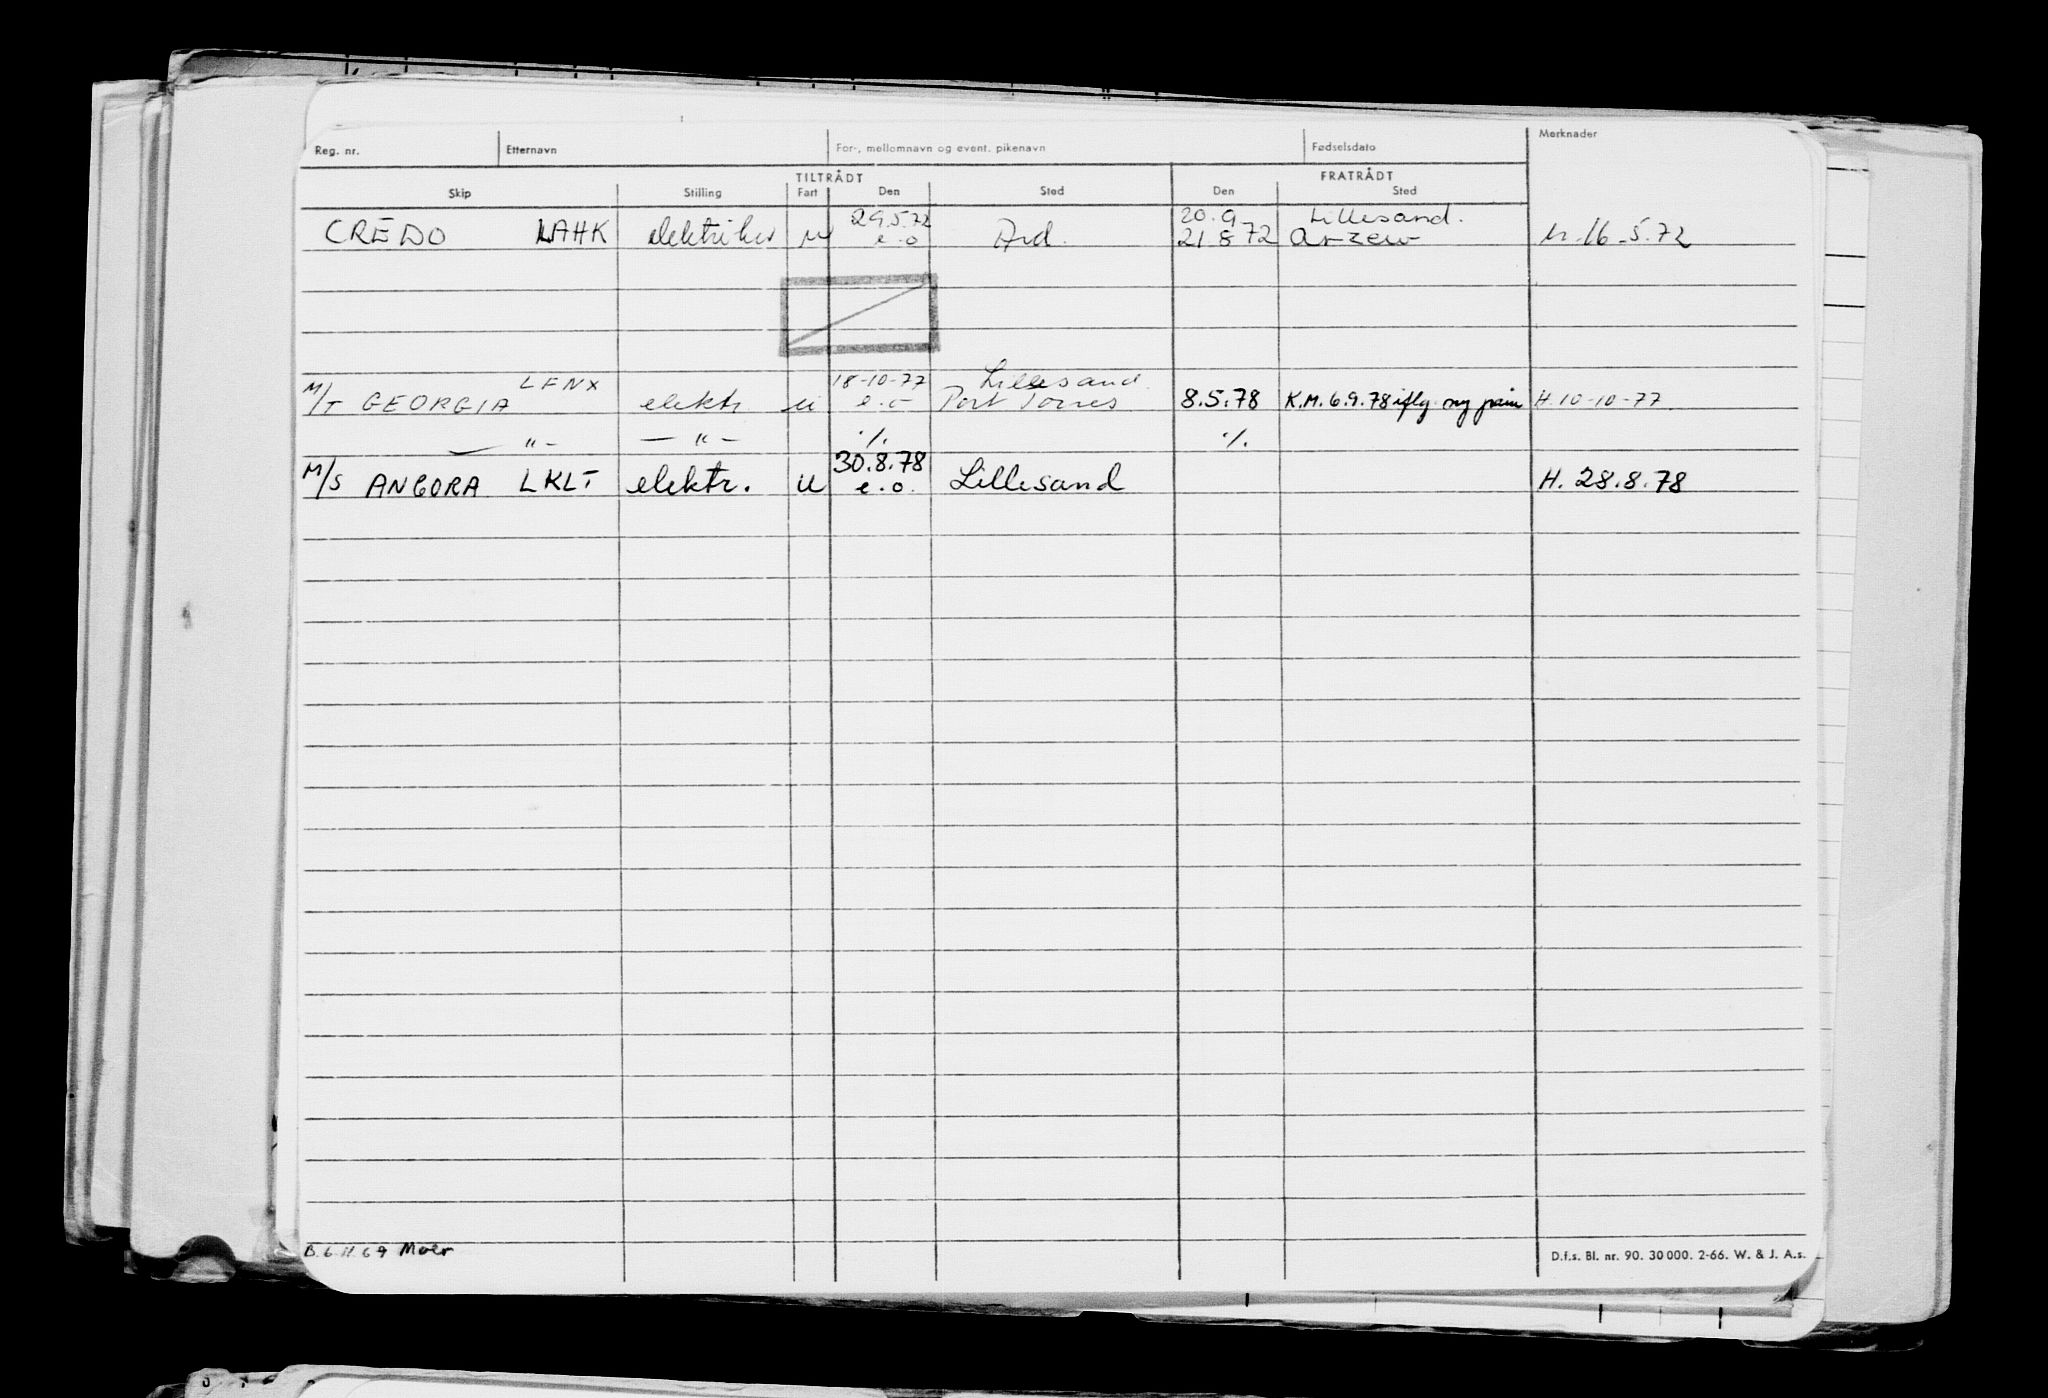 Reg. nr. Etternavn For-, mellomnavn og event. pikenavn Fødselsdato Merknader
TILTRÅDT FRATRÅDT
Skip Stilling Fart Den Sted Den Sted
29.5.72 20.9 Lillesand.
CREDO LAHK elektriker u e.o Ard. 21.8.72 Arzew M. 16.5.72
LENX 18-10-77 Lillesand.
M/T GEORGIA elektr u e.o Port Torres 8.5.78 K.M. 6.9.78 iflg. ny H. 10-10-77
— " — — " — ./. ./.
30.8.78
M/S ANGORA LKLT elektr. u e.o. Lillesand H. 28.8.78
B. 6.11.69 Moer
D.f.s. Bl. nr. 90. 30 000. 2-66. W. & J. A.s.